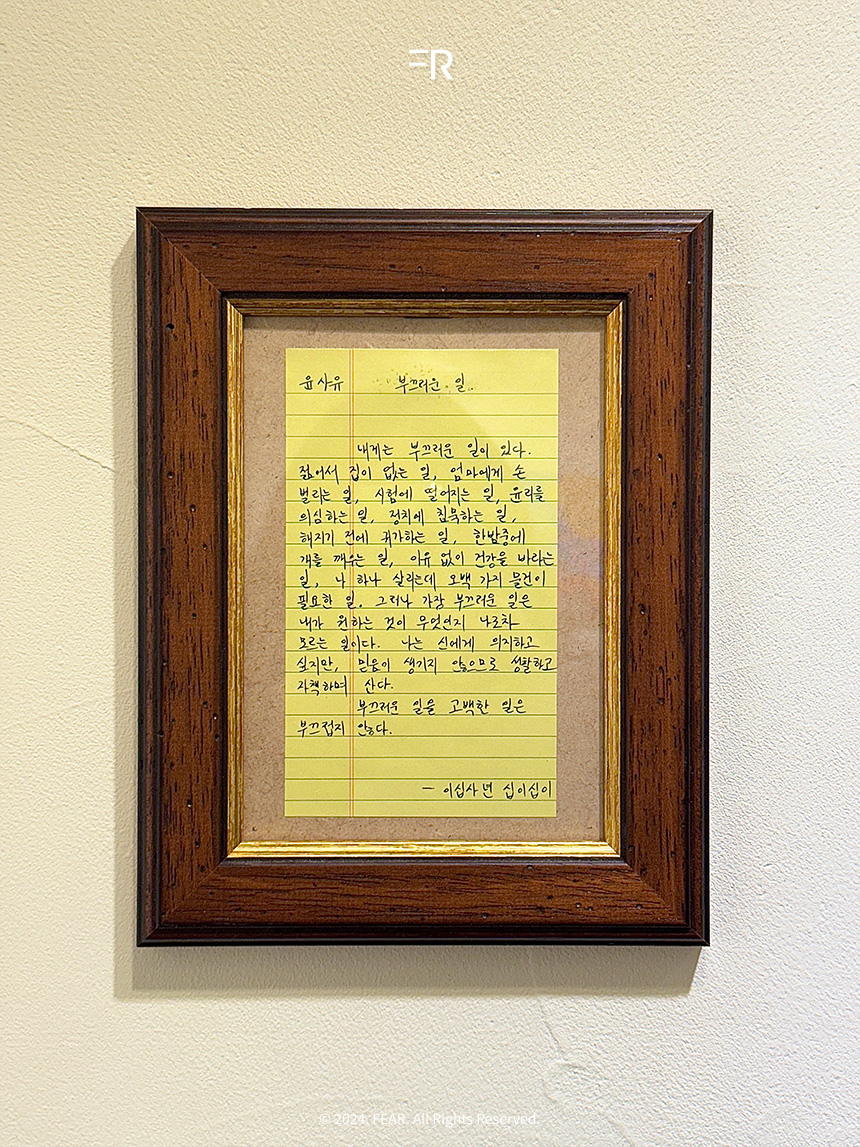 FR
윤사유 부끄러운 일.
내게는 부끄러운 일이 있다.
젊어서 집이 없는 일, 엄마에게 손
벌리는 일, 시험에 떨어지는 일, 윤리를
의심하는 일, 정치에 침묵하는 일,
해지기 전에 귀가하는 일, 한밤중에
개를 깨우는 일, 이유 없이 건강을 바라는
일, 나 하나 살리는데 오백 가지 물건이
필요한 일. 그러나 가장 부끄러운 일은
내가 원하는 것이 무엇인지 나조차
모르는 일이다. 나는 신에게 의지하고
싶지만, 믿음이 생기지 않으므로 생활하고
자책하며 산다.
부끄러운 일을 고백한 일은
부끄럽지 않다.
— 이십사년 십이십이
© 2024. FEAR. All Rights Reserved.